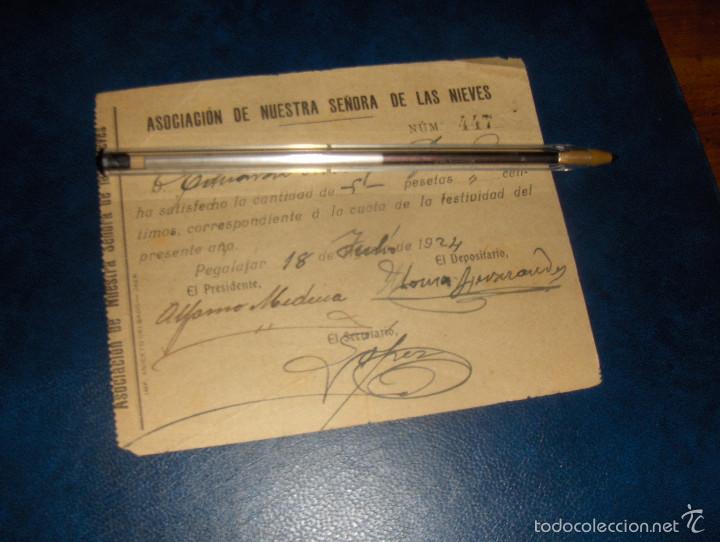 ASOCIACIÓN DE NUESTRA SEÑORA DE LAS NIEVES
NÚM 447
D.
ha satisfecho la cantidad de 5 pesetas y cén-
timos, correspondiente á la cuota de la festividad del
presente año.
Pegalajar 18 de Julio de 1924
El Presidente, El Depositario,
Alfonso Medina
El Secretario,
López
Asociación de Nuestra Señora de las Nieves
todocoleccion.net